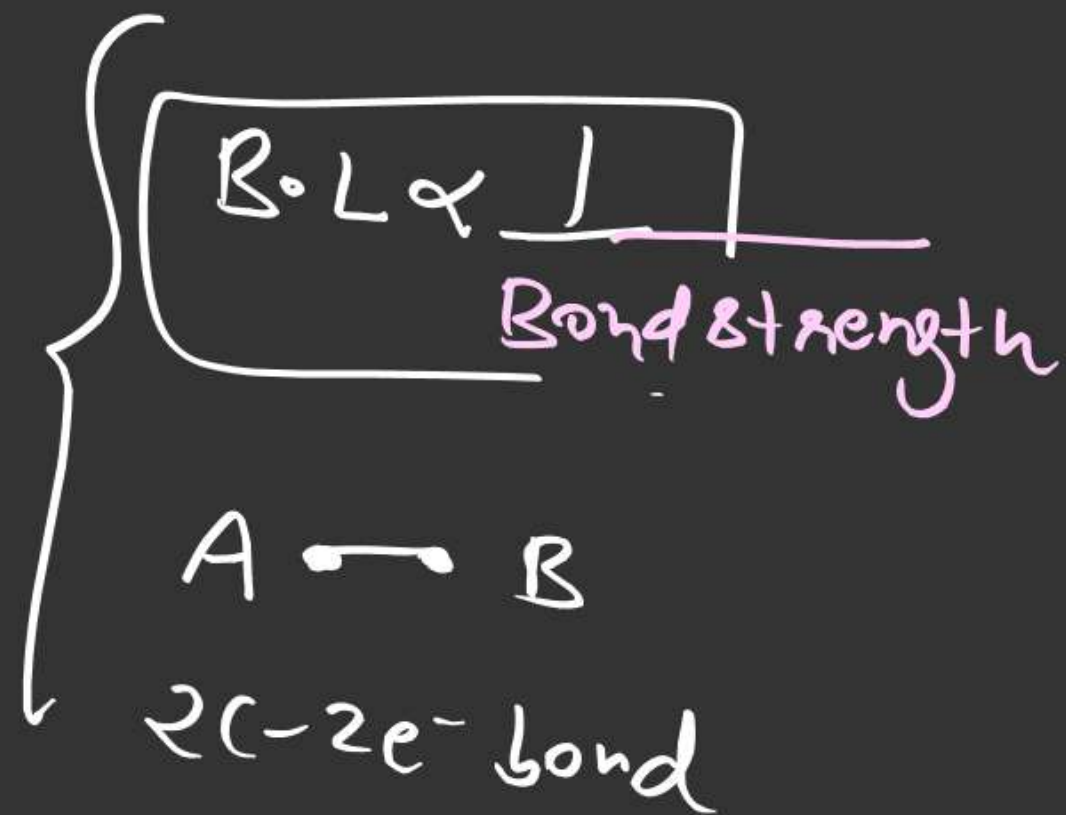 B.L ∝ 1
Bond strength
A B
2C-2e⁻ bond